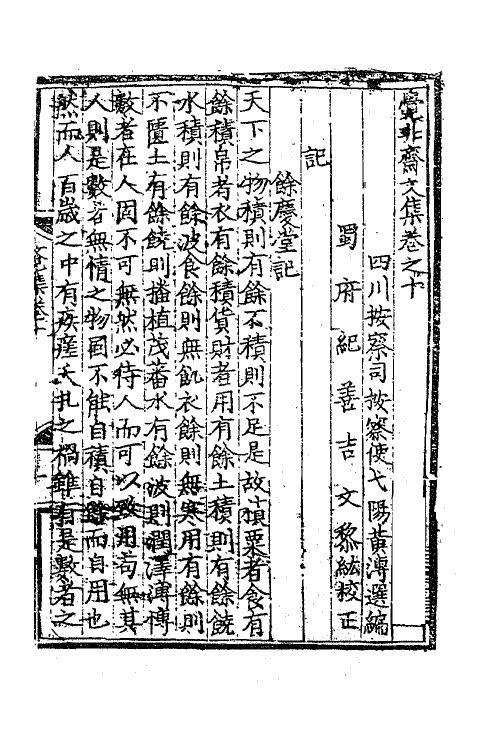 覺非齋文集卷之十
四川按察司按察使弋陽黃溥選編
蜀府紀善吉文黎紘校正
記
餘慶堂記
天下之物積則有餘不積則不足是故積粟者食有
餘積帛者衣有餘積貨財者用有餘土積則有餘饒
水積則有餘波食餘則無飢衣餘則無寒用有餘則
不匱土有餘饒則播植茂蕃水有餘波則潤澤溥博
數者在人固不可無然必待人而可以致用苟無其
人則是數者無情之物固不能自積自餘而自用也
然而人百歲之中有疾瘥夭札之禍雖有是數者之